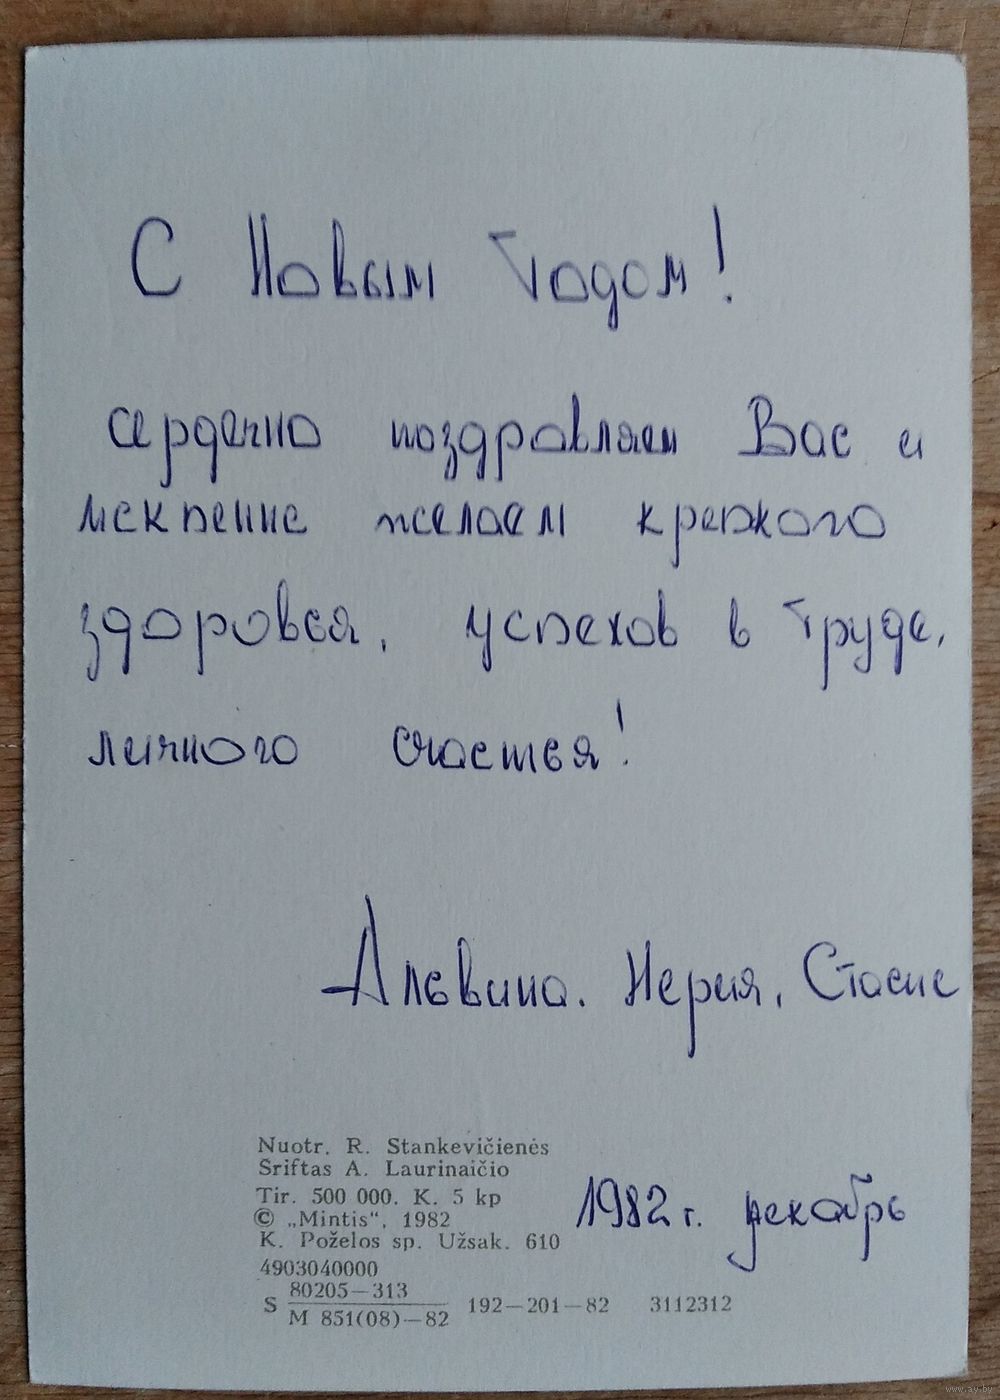 С Новым Годом!
сердечно поздравляем Вас и
искренне желаем крепкого
здоровья, успехов в труде,
личного счастья!
Альвина, Нерия, Стасис
Nuotr. R. Stankevičienės
Šriftas A. Laurinaičio
Tir. 500 000. K. 5 kp
© „Mintis“, 1982
K. Poželos sp. Užsak. 610
1982 г. декабрь
4903040000
S 80205—313
M 851(08)—82
192—201—82 3112312
www.ay.by